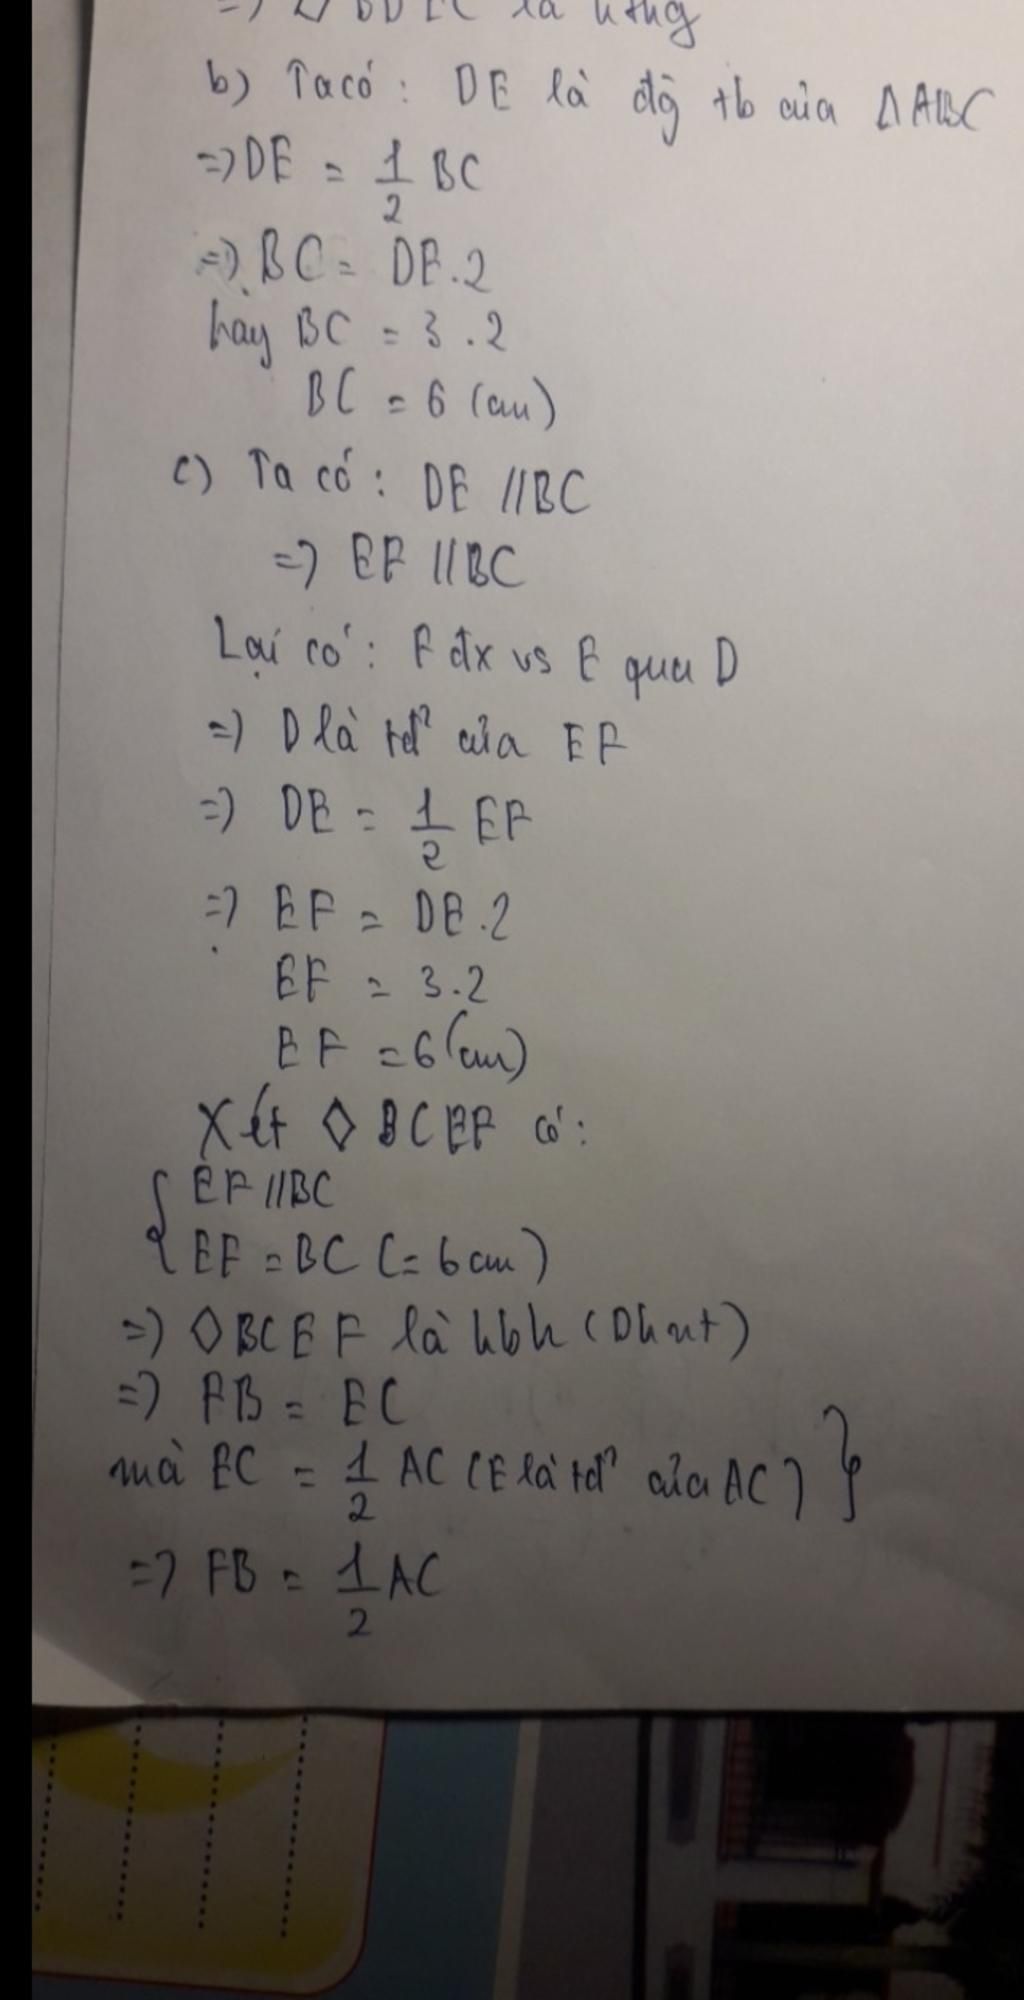 =) ◊ BDEC là hthg
b) Ta có : DE là đg tb của ΔABC
=> DE = 1/2 BC
=> BC = DE.2
hay BC = 3.2
BC = 6 (cm)
c) Ta có : DE // BC
=> EF // BC
Lại có : F đx vs E qua D
=> D là tđ² của EF
=> DE = 1/2 EF
=> EF = DE.2
EF = 3.2
EF = 6 (cm)
Xét ◊ BCEF có :
{ EF // BC
EF = BC (= 6 cm)
=> ◊ BCEF là hbh (Dhnt)
=> FB = EC
mà EC = 1/2 AC (E là tđ² của AC) }
=> FB = 1/2 AC